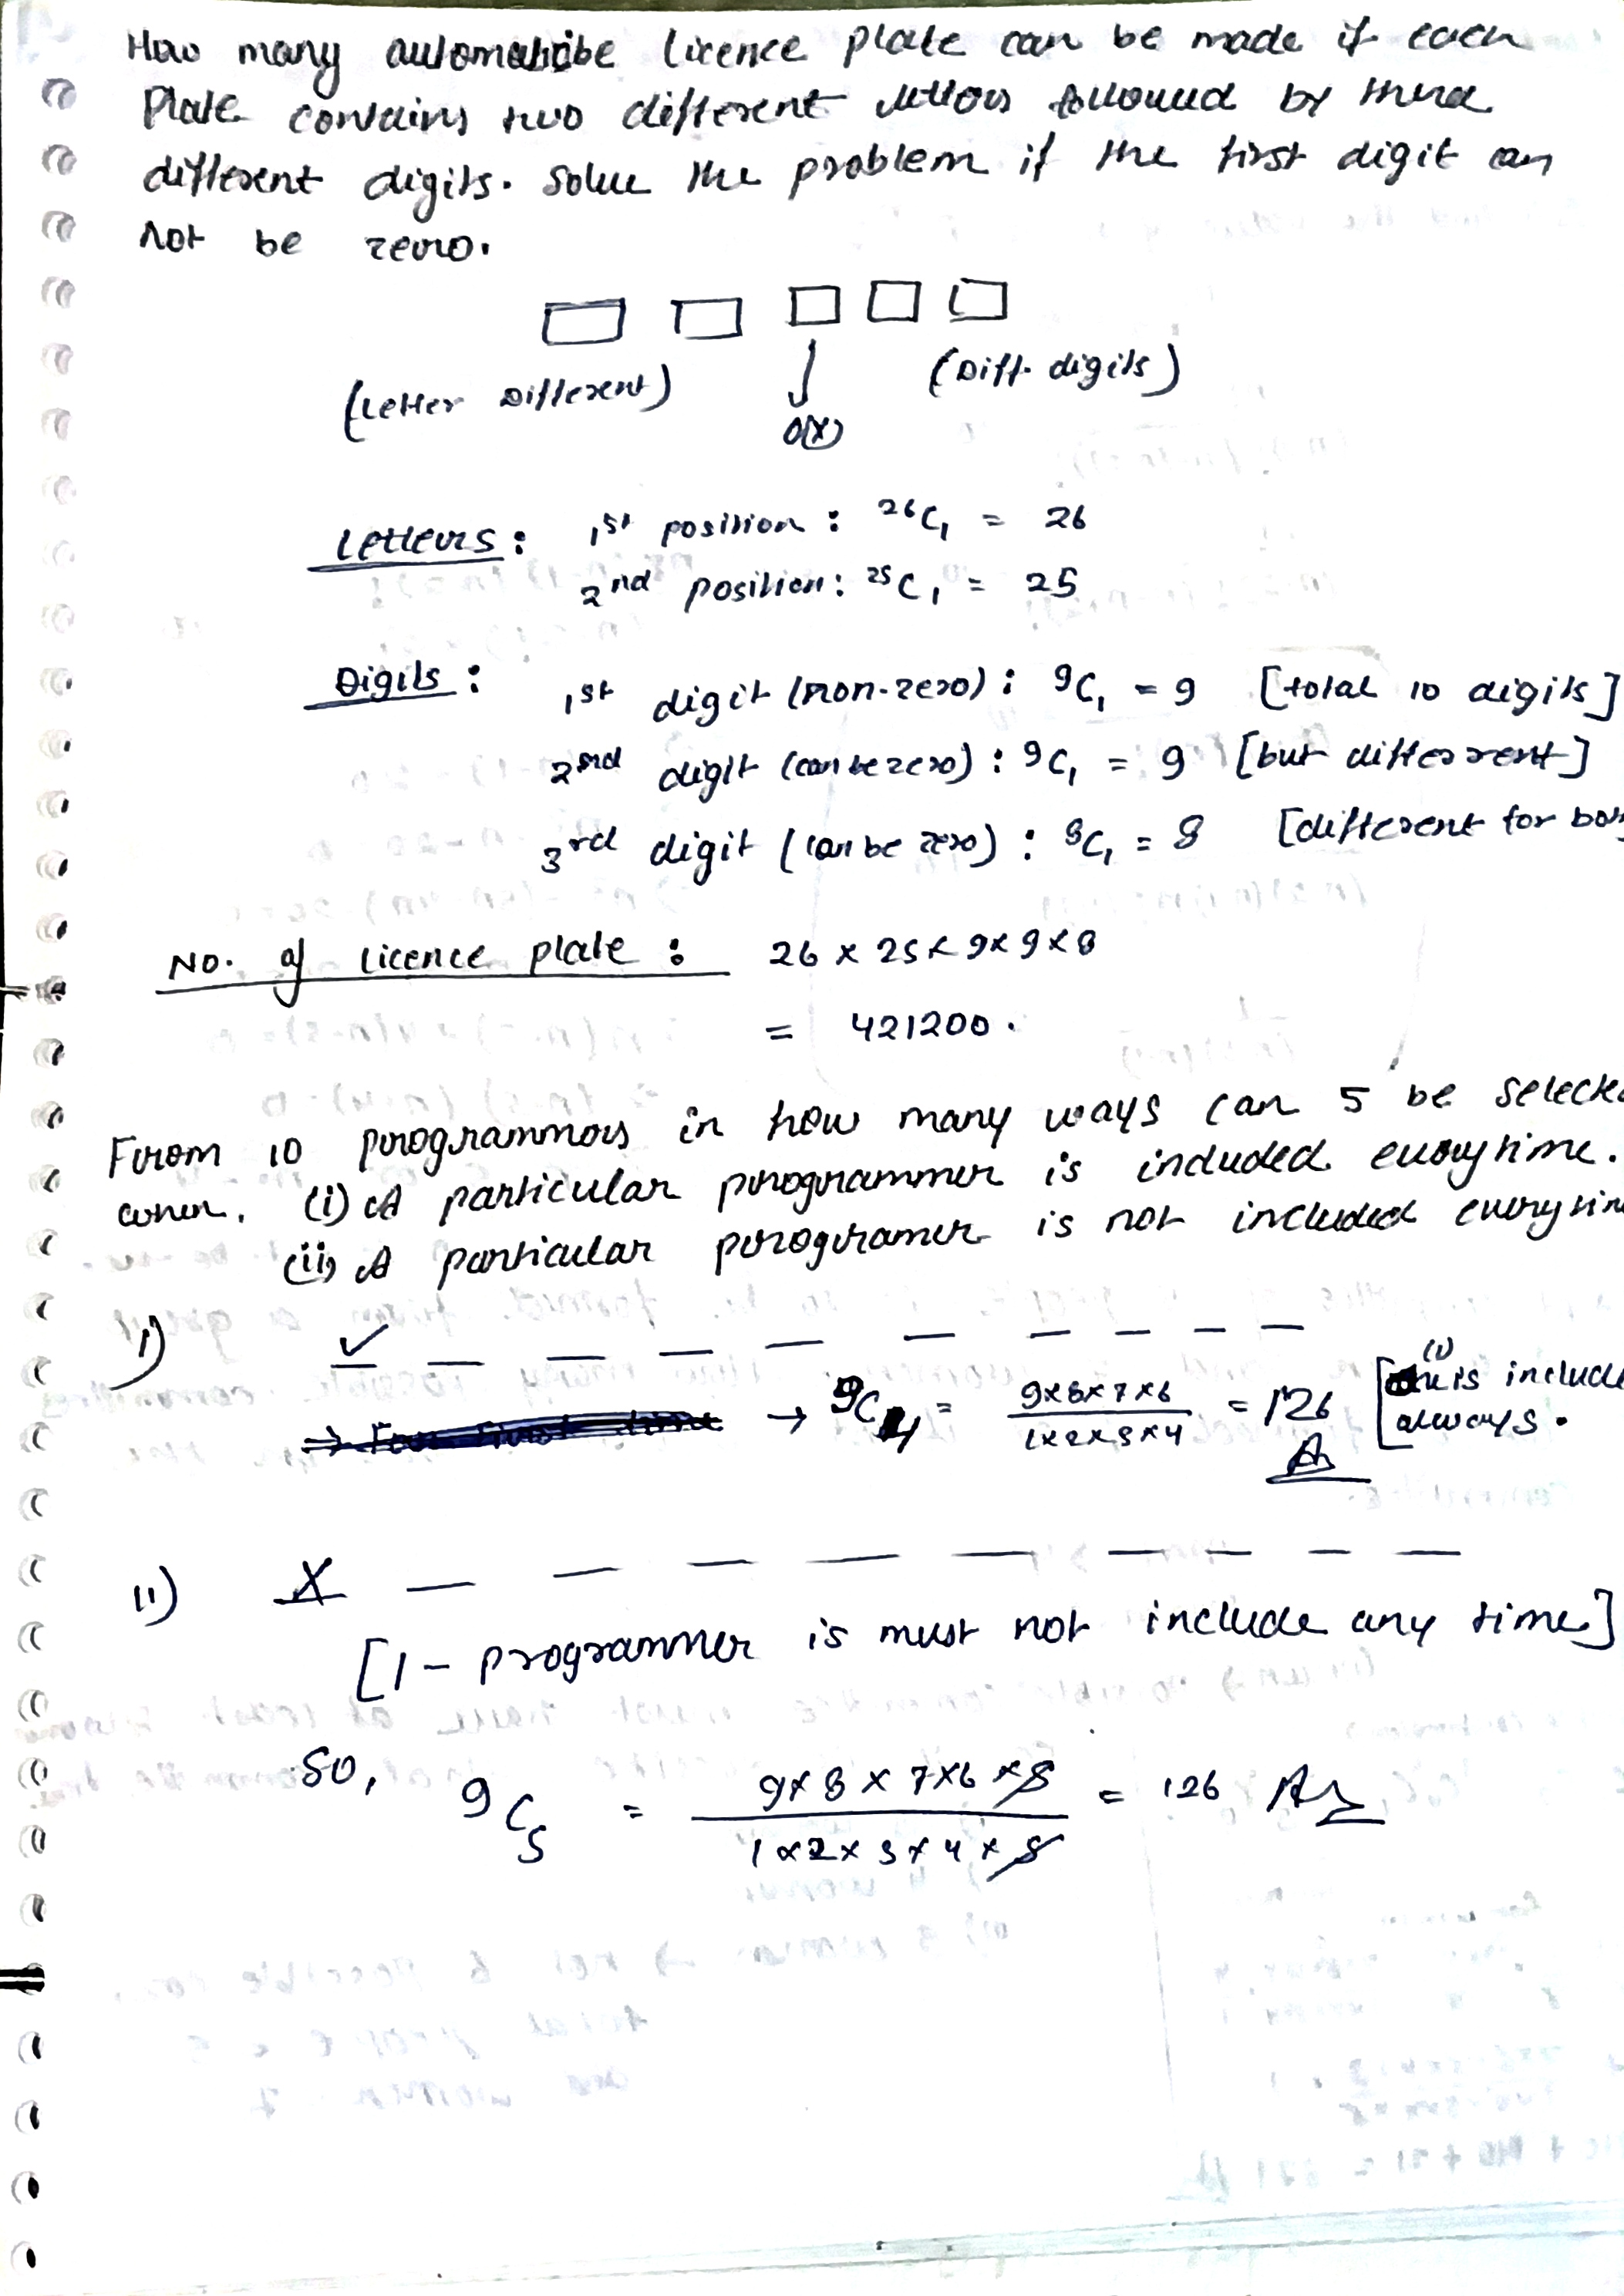 How many automobibe licence plate can be made if each
Plate contains two different letters followed by three
different digits. Solve the problem if the first digit can
not be zero.
(Letter Different) (Diff. digits)
0(X)
Letters: 1st position : 26C1 = 26
2nd position : 25C1 = 25
Digits: 1st digit (non-zero) : 9C1 = 9 [total 10 digits]
2nd digit (can be zero) : 9C1 = 9 [but different]
3rd digit (can be zero) : 8C1 = 8 [different for bot
No. of licence plate : 26 x 25 x 9 x 9 x 8
= 421200.
From 10 programmors in how many ways can 5 be selecte
when. (i) A particular programmer is included everytime.
(ii) A particular programer is not included everytim
i) ✓
→ 9C4 = 9x8x7x6 / 1x2x3x4 = 126 A [(1) is include
always.
ii) X
[1 - programmer is must not include any time]
So, 9C5 = 9x8x7x6x5 / 1x2x3x4x5 = 126 As